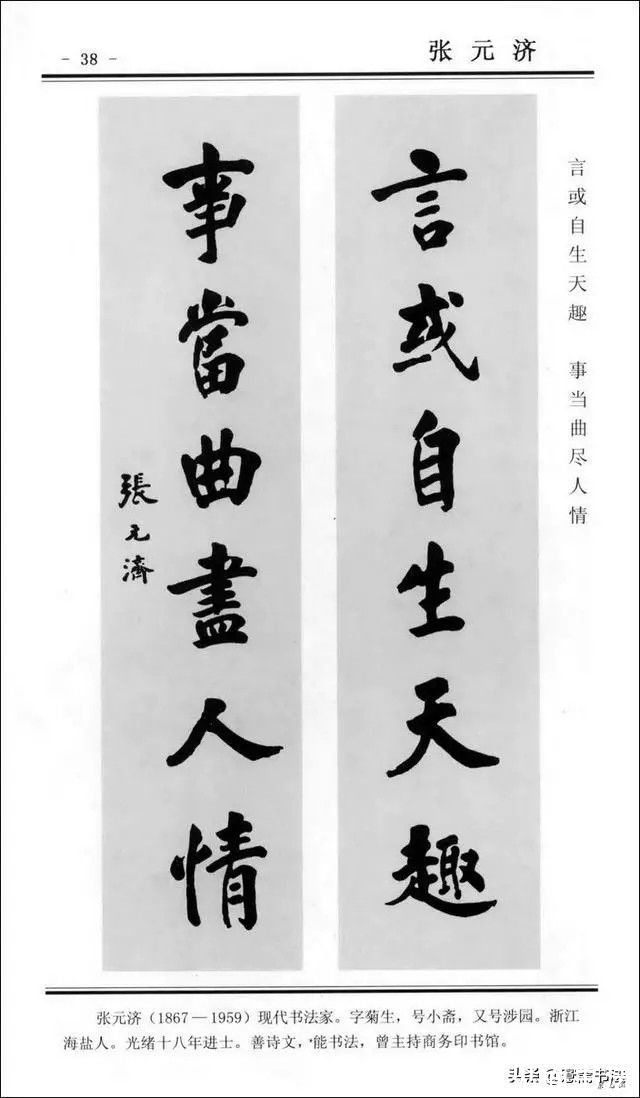 - 38 -
张元济
言或自生天趣
事當曲盡人情
張元濟
言或自生天趣 事当曲尽人情
张元济（1867—1959）现代书法家。字菊生，号小斋，又号涉园。浙江
海盐人。光绪十八年进士。善诗文，能书法，曾主持商务印书馆。
头条